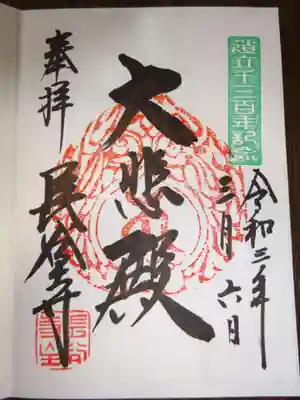 造立千三百年記念
令和三年
三月六日
大悲殿
奉拝
長谷寺